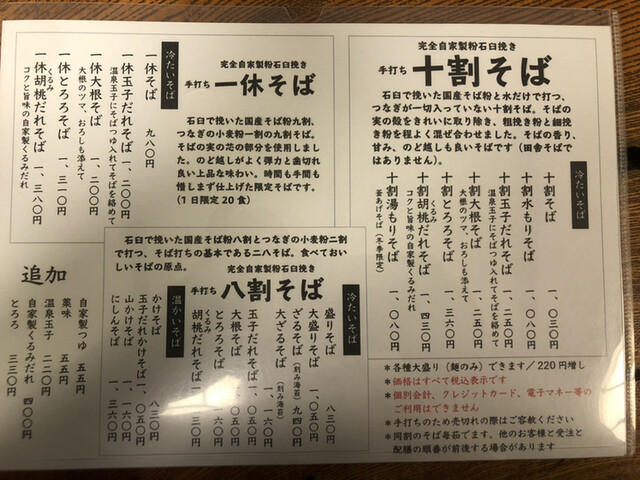 完全自家製粉石臼挽き
手打ち 十割そば
石臼で挽いた国産そば粉と水だけで打つ、
つなぎが一切入っていない十割そば。そばの
実の殻をきれいに取り除き、粗挽き粉と細挽
き粉を程よく混ぜ合わせました。そばの香り、
甘み、のど越しも良いそばです(田舎そば
ではありません)。
冷たいそば
十割そば 一、〇三〇円
十割水もりそば 一、〇八〇円
十割玉子だれそば 一、二五〇円
温泉玉子にそばつゆ入れてそばを絡めて
十割大根そば 一、二五〇円
大根のツマ、おろしも添えて
十割とろろそば 一、三六〇円
十割胡桃だれそば 一、四三〇円
くるみ
コクと旨味の自家製くるみだれ
十割湯もりそば 一、〇八〇円
釜あげそば(冬季限定)
完全自家製粉石臼挽き
手打ち 一休そば
石臼で挽いた国産そば粉九割、
つなぎの小麦粉一割の九割そば。
そばの実の芯の部分を使用しまし
た。のど越しがよく弾力と歯切れ
良い上品な味わい。時間も手間も
惜しまず仕上げた限定そばです。
(1日限定20食)
冷たいそば
一休そば 九八〇円
一休玉子だれそば 一、二〇〇円
温泉玉子にそばつゆ入れてそばを絡めて
一休大根そば 一、二〇〇円
大根のツマ、おろしも添えて
一休とろろそば 一、三一〇円
一休胡桃だれそば 一、三八〇円
くるみ
コクと旨味の自家製くるみだれ
石臼で挽いた国産そば粉八割とつなぎの小麦粉二割
で打つ、そば打ちの基本である二八そば。食べておい
しいそばの原点。
完全自家製粉石臼挽き
手打ち 八割そば
冷たいそば
盛りそば 八三〇円
大盛りそば 一、〇五〇円
ざるそば(刻み海苔) 九四〇円
大ざるそば(刻み海苔)
玉子だれそば 一、〇五〇円
大根そば 一、〇五〇円
とろろそば 一、一六〇円
胡桃だれそば 一、二三〇円
くるみ
温かいそば
かけそば 八三〇円
玉子だれかけそば 一、〇五〇円
山かけそば 一、一六〇円
にしんそば
追加
自家製つゆ 五五円
薬味 五五円
温泉玉子 一一〇円
自家製くるみだれ 四〇〇円
とろろ 三三〇円
*各種大盛り(麺のみ)できます/220円増し
*価格はすべて税込表示です
*個別会計、クレジットカード、電子マネー等の
ご利用はできません
*手打ちのため売切れの際はご容赦ください
*同割のそば毎茹でます。他のお客様と受注と
配膳の順番が前後する場合があります